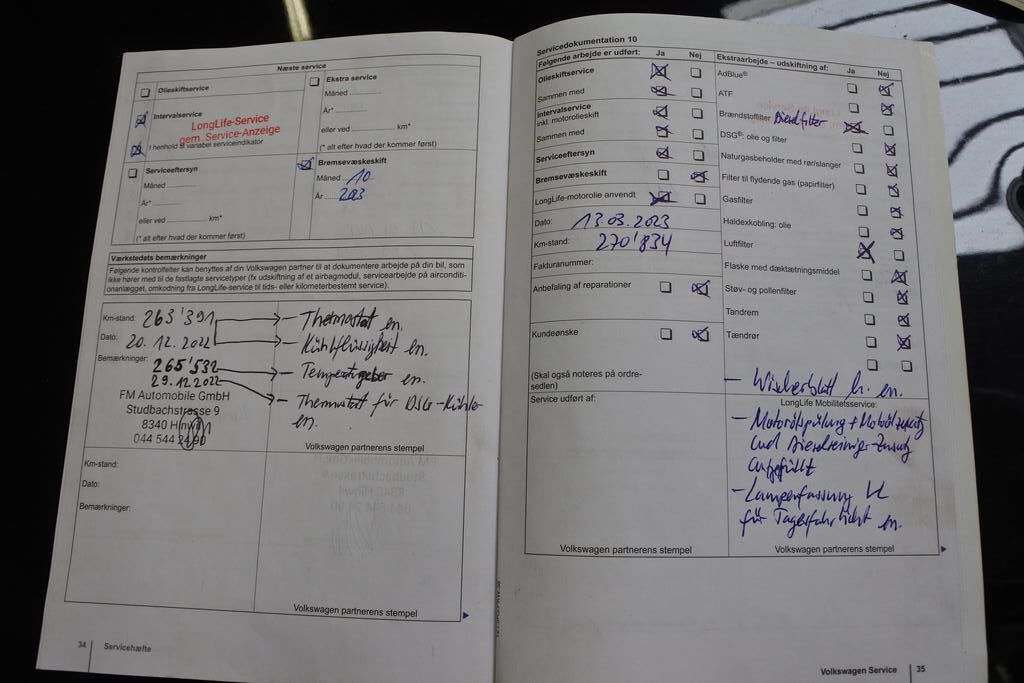 Næste service
Olieskiftservice
Intervalservice
LongLife-Service
gem. Service-Anzeige
I henhold til variabel serviceindikator
Serviceeftersyn
Måned
År*
eller ved km*
(* alt efter hvad der kommer først)
Ekstra service
Måned
År*
eller ved km*
(* alt efter hvad der kommer først)
Bremsevæskeskift
Måned 10
År
Værkstedets bemærkninger
Følgende kontrolfelter kan benyttes af din Volkswagen partner til at dokumentere arbejde på din bil, som
ikke hører med til de fastlagte servicetyper (fx udskiftning af et airbagmodul, servicearbejde på aircondit-
onanlægget, omkodning fra LongLife-service til tids- eller kilometerbestemt service).
Km-stand: 263'391
Dato: 20.12.2022
Bemærkninger:
265'532
29.12.2022
FM Automobile GmbH
Studbachstrasse 9
8340 Hinwil
044 544 24 90
– Thermostat en.
– Kühlflüssigkeit en.
– Temperaturgeber en.
– Thermostat für DSG-Kühler
en.
Volkswagen partnerens stempel
Km-stand:
Dato:
Bemærkninger:
Volkswagen partnerens stempel
34 Servicehæfte
Servicedokumentation 10
Følgende arbejde er udført: Ja Nej
Olieskiftservice
Sammen med
Intervalservice
inkl. motorolieskift
Sammen med
Serviceeftersyn
Bremsevæskeskift
LongLife-motorolie anvendt
Dato: 13.03.2023
Km-stand: 270'834
Fakturanummer:
Anbefaling af reparationer
Kundeønske
(Skal også noteres på ordre-
sedlen)
Service udført af:
Volkswagen partnerens stempel
Ekstraarbejde – udskiftning af: Ja Nej
AdBlue®
ATF
Brændstoffilter Dieselfilter
DSG®: olie og filter
Naturgasbeholder med rør/slanger
Filter til flydende gas (papirfilter)
Gasfilter
Haldexkobling: olie
Luftfilter
Flaske med dæktætningsmiddel
Støv- og pollenfilter
Tandrem
Tændrør
– Wischerblatt h. en.
LongLife Mobilitetsservice:
– Motorölspülung + Motoröl-Zusatz
und Dieselreiniger-Zusatz
aufgefüllt
– Lampenfassung
für Tagesfahrlicht en.
Volkswagen partnerens stempel
Volkswagen Service 35